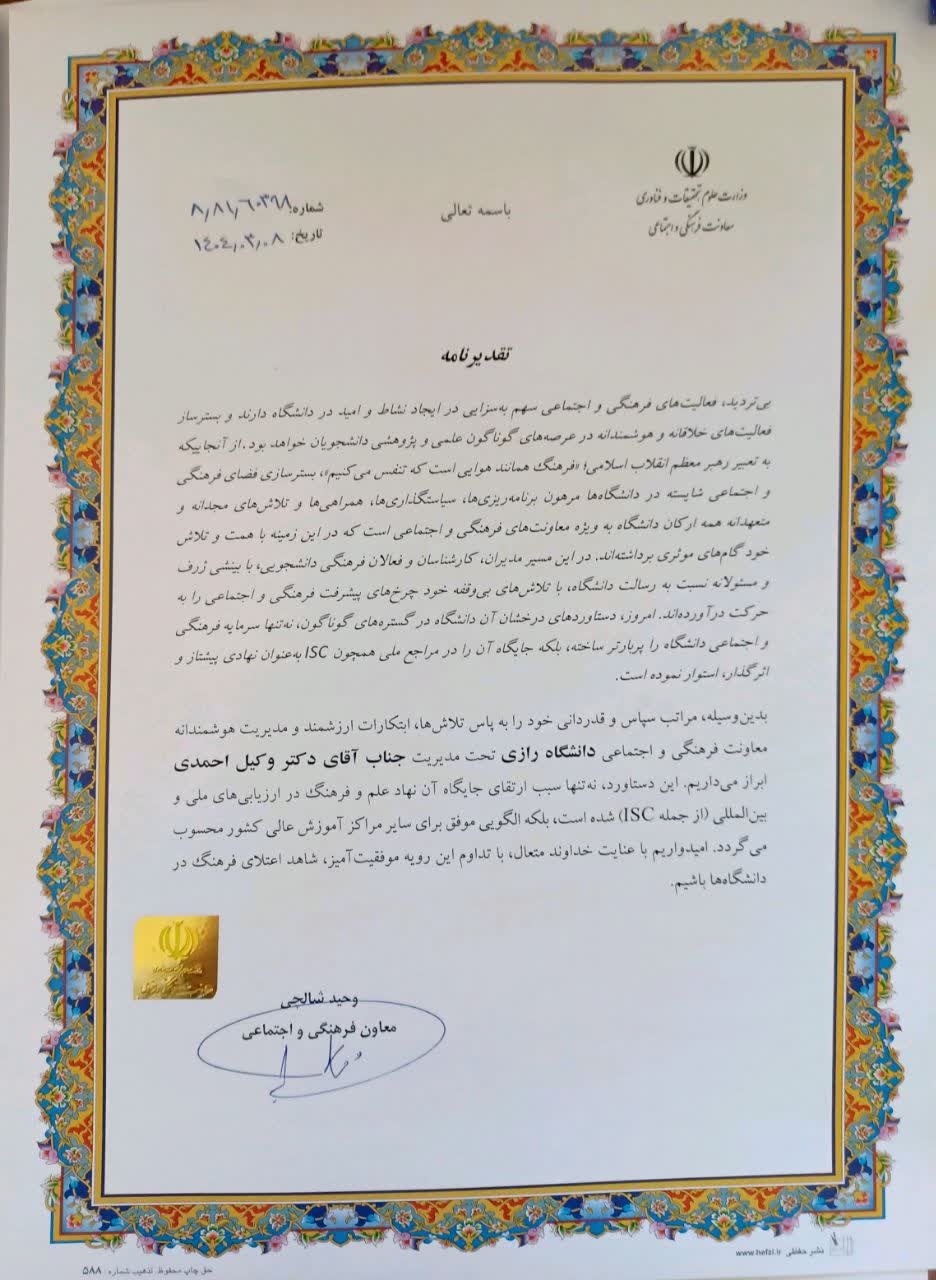 وزارت علوم تحقیقات و فناوری
معاونت فرهنگی و اجتماعی
باسمه تعالی
شماره: ۸٫۸۱٫۶۰۳۹۸
تاریخ: ۱۴۰۴٫۰۳٫۰۸
تقدیرنامه
بی‌تردید، فعالیت‌های فرهنگی و اجتماعی سهم به‌سزایی در ایجاد نشاط و امید در دانشگاه دارند و بسترساز
فعالیت‌های خلاقانه و هوشمندانه در عرصه‌های گوناگون علمی و پژوهشی دانشجویان خواهد بود. از آنجاییکه
به تعبیر رهبر معظم انقلاب اسلامی؛ «فرهنگ همانند هوایی است که تنفس می‌کنیم»، بسترسازی فضای فرهنگی
و اجتماعی شایسته در دانشگاه‌ها مرهون برنامه‌ریزی‌ها، سیاستگذاری‌ها، همراهی‌ها و تلاش‌های مجدانه و
متعهدانه همه ارکان دانشگاه به ویژه معاونت‌های فرهنگی و اجتماعی است که در این زمینه با همت و تلاش
خود گام‌های موثری برداشته‌اند. در این مسیر مدیران، کارشناسان و فعالان فرهنگی دانشجویی، با بینشی ژرف
و مسئولانه نسبت به رسالت دانشگاه، با تلاش‌های بی‌وقفه خود چرخ‌های پیشرفت فرهنگی و اجتماعی را به
حرکت درآورده‌اند. امروز، دستاوردهای درخشان آن دانشگاه در گستره‌های گوناگون، نه‌تنها سرمایه فرهنگی
و اجتماعی دانشگاه را پربارتر ساخته، بلکه جایگاه آن را در مراجع ملی همچون ISC به‌عنوان نهادی پیشتاز و
اثرگذار، استوار نموده است.
بدین‌وسیله، مراتب سپاس و قدردانی خود را به پاس تلاش‌ها، ابتکارات ارزشمند و مدیریت هوشمندانه
معاونت فرهنگی و اجتماعی دانشگاه رازی تحت مدیریت جناب آقای دکتر وکیل احمدی
ابراز می‌داریم. این دستاورد، نه‌تنها سبب ارتقای جایگاه آن نهاد علم و فرهنگ در ارزیابی‌های ملی و
بین‌المللی (از جمله ISC) شده است، بلکه الگویی موفق برای سایر مراکز آموزش عالی کشور محسوب
می‌گردد. امیدواریم با عنایت خداوند متعال، با تداوم این رویه موفقیت‌آمیز، شاهد اعتلای فرهنگ در
دانشگاه‌ها باشیم.
وحید شالچی
معاون فرهنگی و اجتماعی
نشر حفظی www.hefzi.ir
حق چاپ محفوظ تذهیب شماره: ۵۸۸